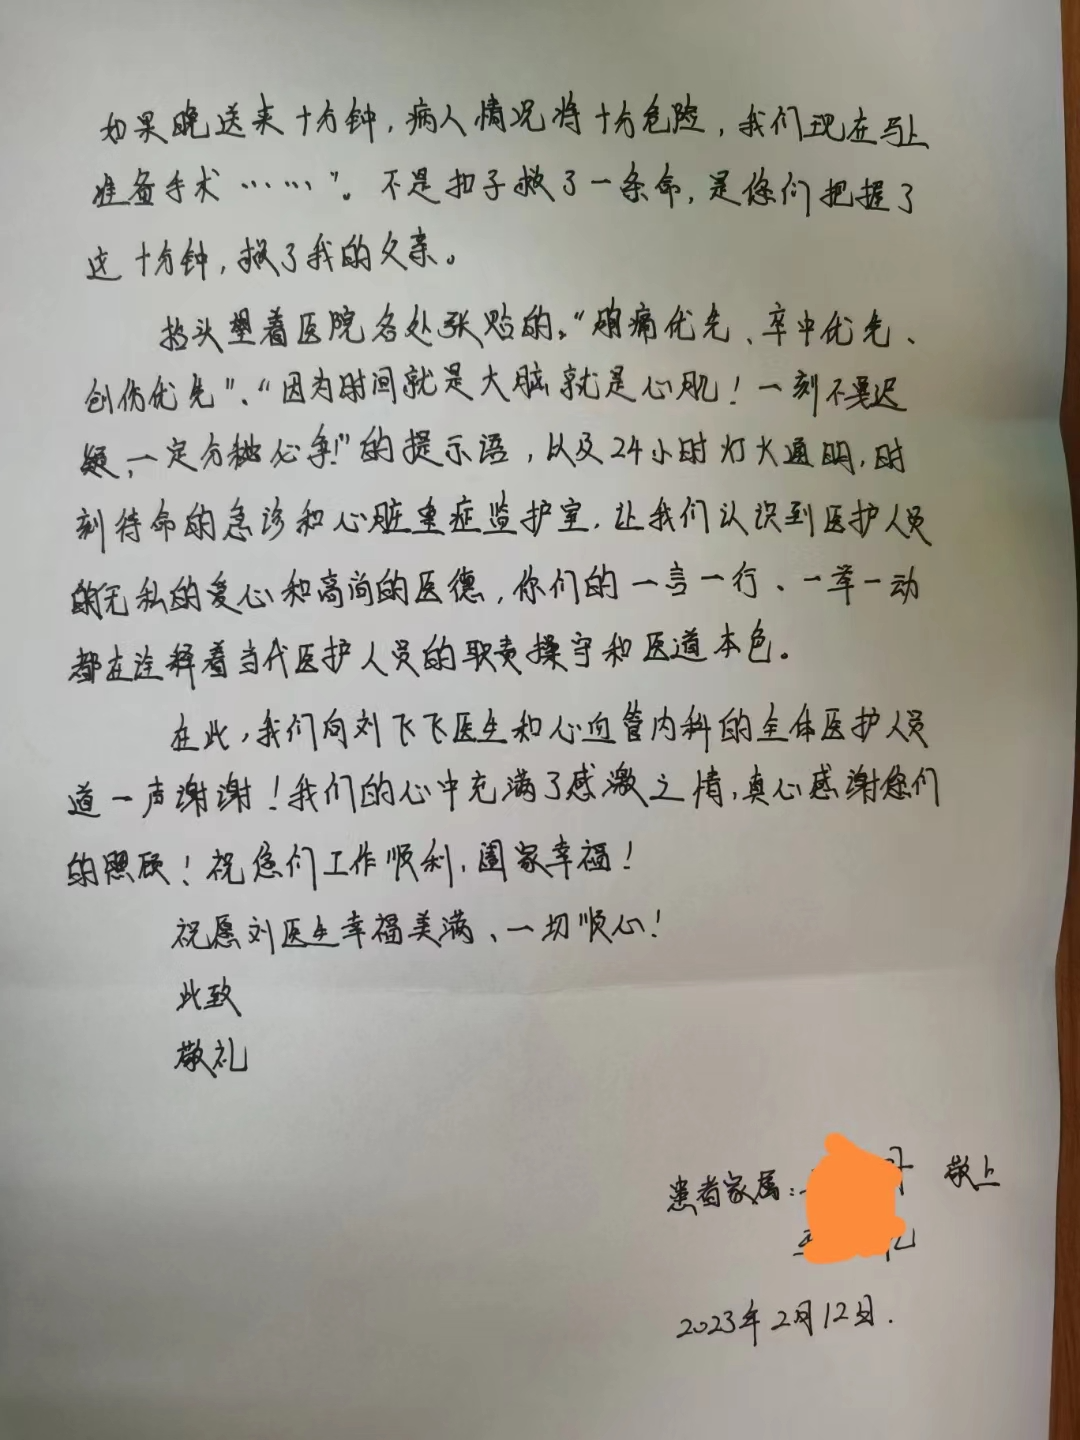 如果晚送来十分钟，病人情况将十分危险，我们现在马上
准备手术……”。不是扣子救了一条命，是您们把握了
这十分钟，救了我的父亲。
抬头望着医院各处张贴的，“胸痛优先、卒中优先、
创伤优先”、“因为时间就是大脑就是心肌！一刻不要迟
疑，一定分秒必争！”的提示语，以及24小时灯火通明，时
刻待命的急诊和心脏重症监护室，让我们认识到医护人员
的无私的爱心和高尚的医德，你们的一言一行、一举一动
都在诠释着当代医护人员的职责操守和医道本色。
在此，我们向刘飞飞医生和心血管内科的全体医护人员
道一声谢谢！我们的心中充满了感激之情，真心感谢您们
的照顾！祝您们工作顺利，阖家幸福！
祝愿刘医生幸福美满、一切顺心！
此致
敬礼
患者家属： 敬上
2023年2月12日.